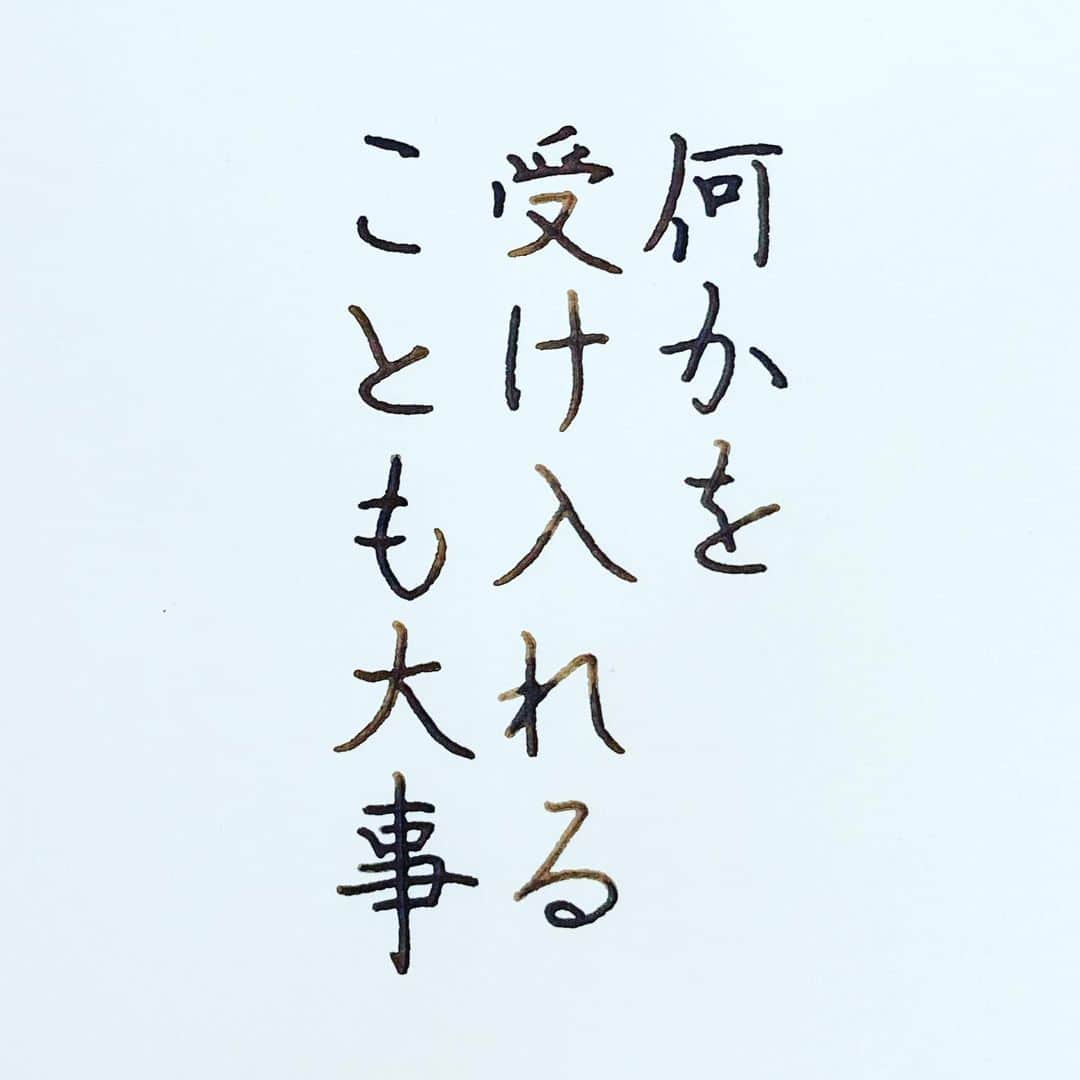 何かを
受け入れる
ことも大事